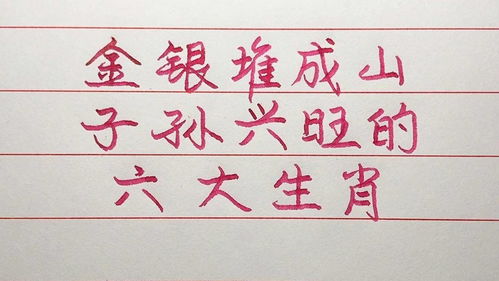 金银堆成山
子孙兴旺的
六大生肖